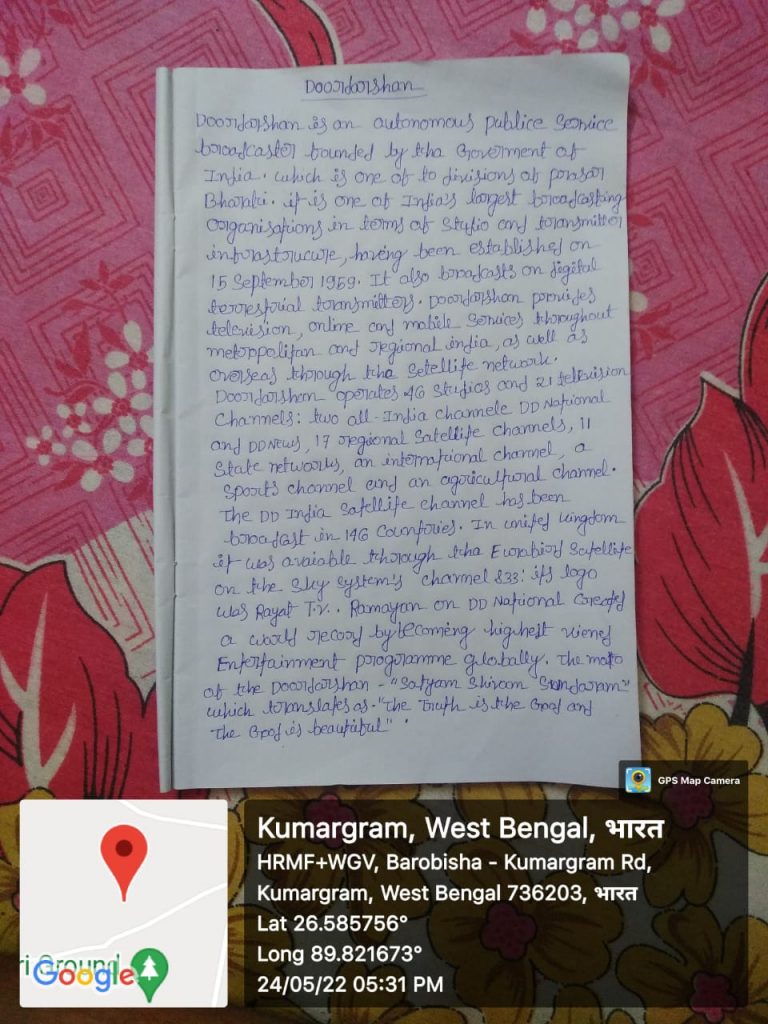 Doordarshan
Doordarshan is an autonomous publice Service
broadcaster bounded by tha Goverment of
India. which is one of to divisions of porasar
Bharati. it is one of India's largest broadcasting
Organisations in terms of Studio and transmitter
infrastrucure, having been established on
15 September 1959. It also broadcasts on digital
terrestrial transmitters. Doordarshan provides
television, online and mobile Services throughout
metoppolitan and regional india, as well as
overseas through tha Setellite network.
Doordarshan operates 46 Studios and 21 television
Channels: two all-India channele DD National
and DD News, 17 regional Satellite channels, 11
State networks, an international channel, a
Sports channel and an agoricultural channel.
The DD India Satellite channel has been
broadcast in 146 Countories. In united Kingdom
it was avaiable thorough tha Eurobird Satellite
on the Sky system's channel 833: its logo
was Rayat T.V.. Ramayan on DD National Created
a world record by becomeing highest viewed
Entertainment programme globally. The moto
of the Doordarshan - "Satyam Shivam Sundaram"
which translates as "The Truth is the God and
The God is beautiful".
GPS Map Camera
Kumargram, West Bengal, भारत
HRMF+WGV, Barobisha - Kumargram Rd,
Kumargram, West Bengal 736203, भारत
Lat 26.585756°
Long 89.821673°
24/05/22 05:31 PM
ri Ground
Google